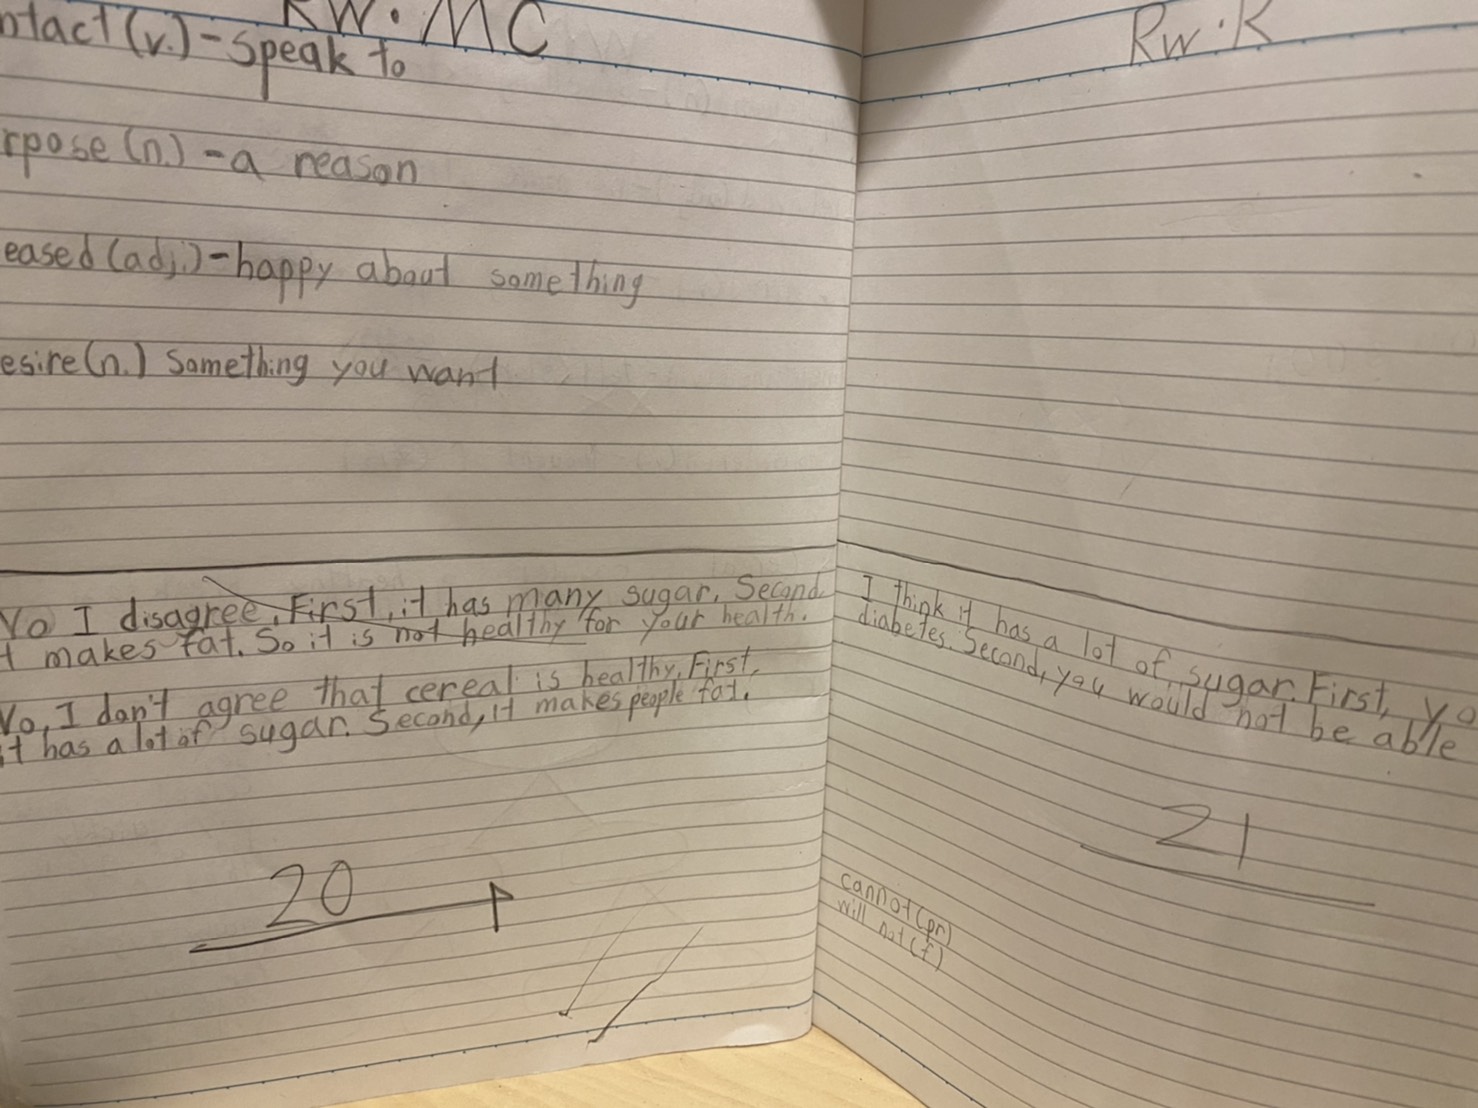 RW. MC
ntact (v.) - speak to
rpose (n.) - a reason
eased (adj.) - happy about something
esire (n.) something you want
No I disagree. First, it has many sugar. Second
t makes fat. So it is not healthy for your health.
No, I don't agree that cereal is healthy. First,
it has a lot of sugar. Second, it makes people fat.
20
RW. R
I think it has a lot of sugar. First, yo
diabetes. Second, you would not be able
21
cannot (pr)
will not (f)